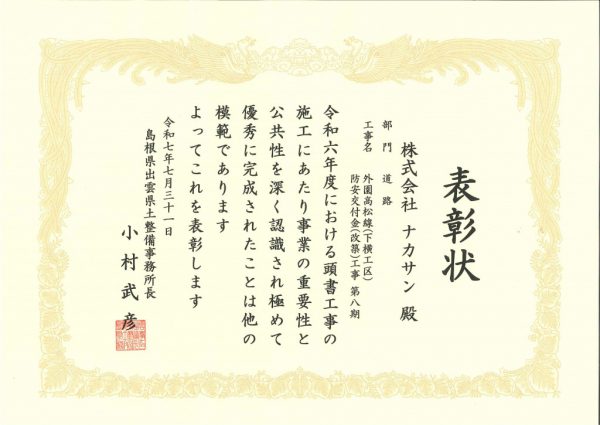 表彰状
株式会社 ナカサン 殿
部門 道路
工事名 外園高松線(下横工区)
防安交付金(改築)工事 第八期
令和六年度における頭書工事の
施工にあたり事業の重要性と
公共性を深く認識され極めて
優秀に完成されたことは他の
模範であります
よってこれを表彰します
令和七年七月三十一日
島根県出雲県土整備事務所長
小村武彦